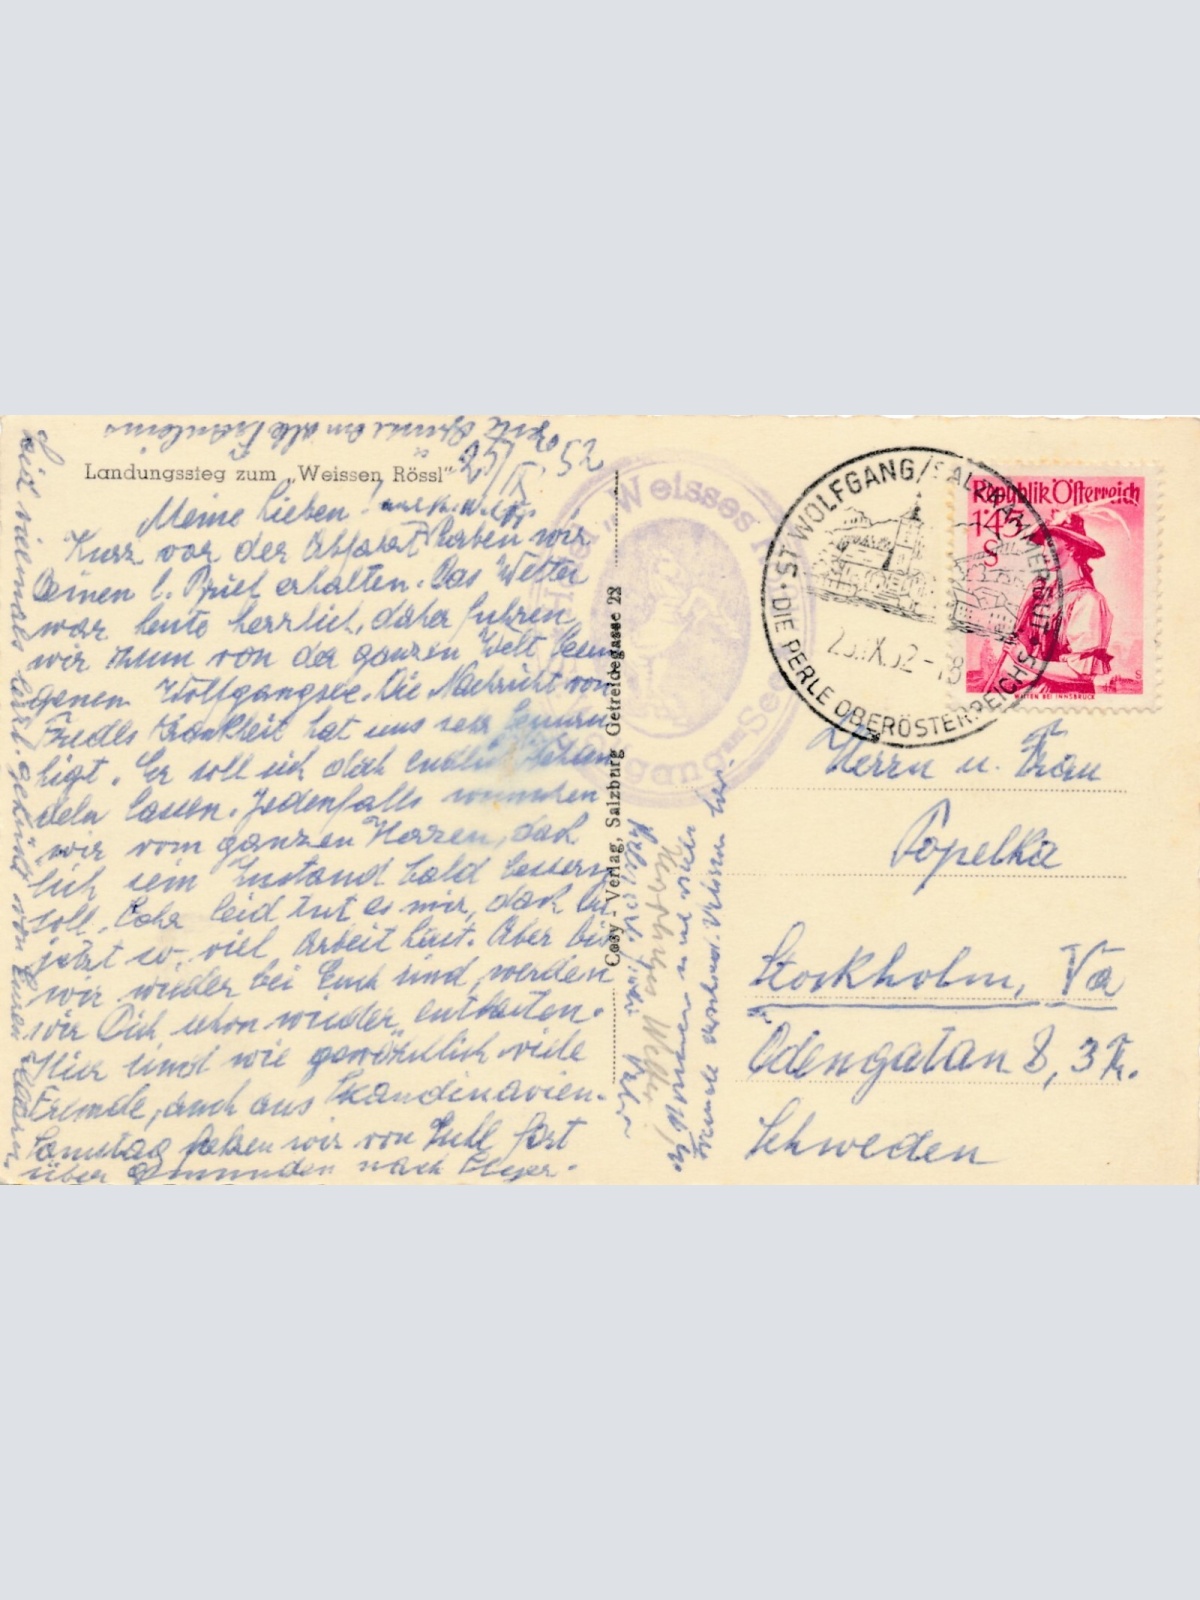 Landungssteg zum „Weissen Rössl“
25/IX. 52
Meine Lieben!
Kurz vor der Abfahrt haben wir
Deinen l. Brief erhalten. Das Wetter
war heute herrlich, daher fuhren
wir zum von der ganzen Welt besun
genen Wolfgangsee. Die Nachricht von
Friedls Krankheit hat uns sehr beunru
higt. Er soll sich doch endlich behan
deln lassen. Jedenfalls wünschen
wir vom ganzen Herzen, daß
sich sein Zustand bald bessern
soll. Sehr leid tut es mir, daß Du
jetzt so viel Arbeit hast. Aber bis
wir wieder bei Euch sind, werden
wir Dich schon wieder entlasten.
Hier sind wie gewöhnlich viele
Fremde, auch aus Skandinavien.
Samstag fahren wir von Ischl fort
über Gmunden nach Steyr.
Seid vielmals herzl. geküßt von Euren
Cosy-Verlag, Salzburg Getreidegasse 22
"Weisses
Wolfgang-See
ST. WOLFGANG/SALZKAMMERGUT
DIE PERLE OBERÖSTERREICHS
25.IX.52-18
Republik Österreich
1·45
S
WILTEN BEI INNSBRUCK
Herrn u. Frau
Popelka
Stockholm, Va
Odengatan 8, 3 Tr.
Schweden